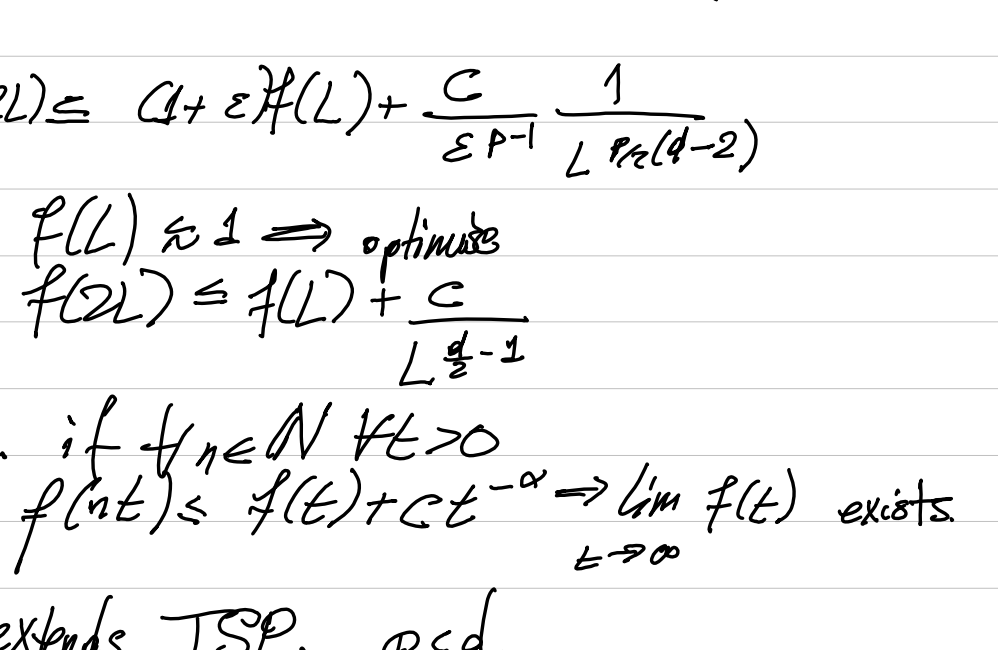 2L) ≤ (1+ ε)f(L) + C/ε^{p-1} 1/L^{p/2(d-2)}
f(L) ≲ 1 ⟹ optimise
f(2L) ≤ f(L) + C/L^{d/2 - 1}
. if ∀n∈ℕ ∀t>0
f(nt) ≤ f(t)+ct^{-α} ⇒ lim_{t→∞} f(t) exists.
extends TSP. p≤d